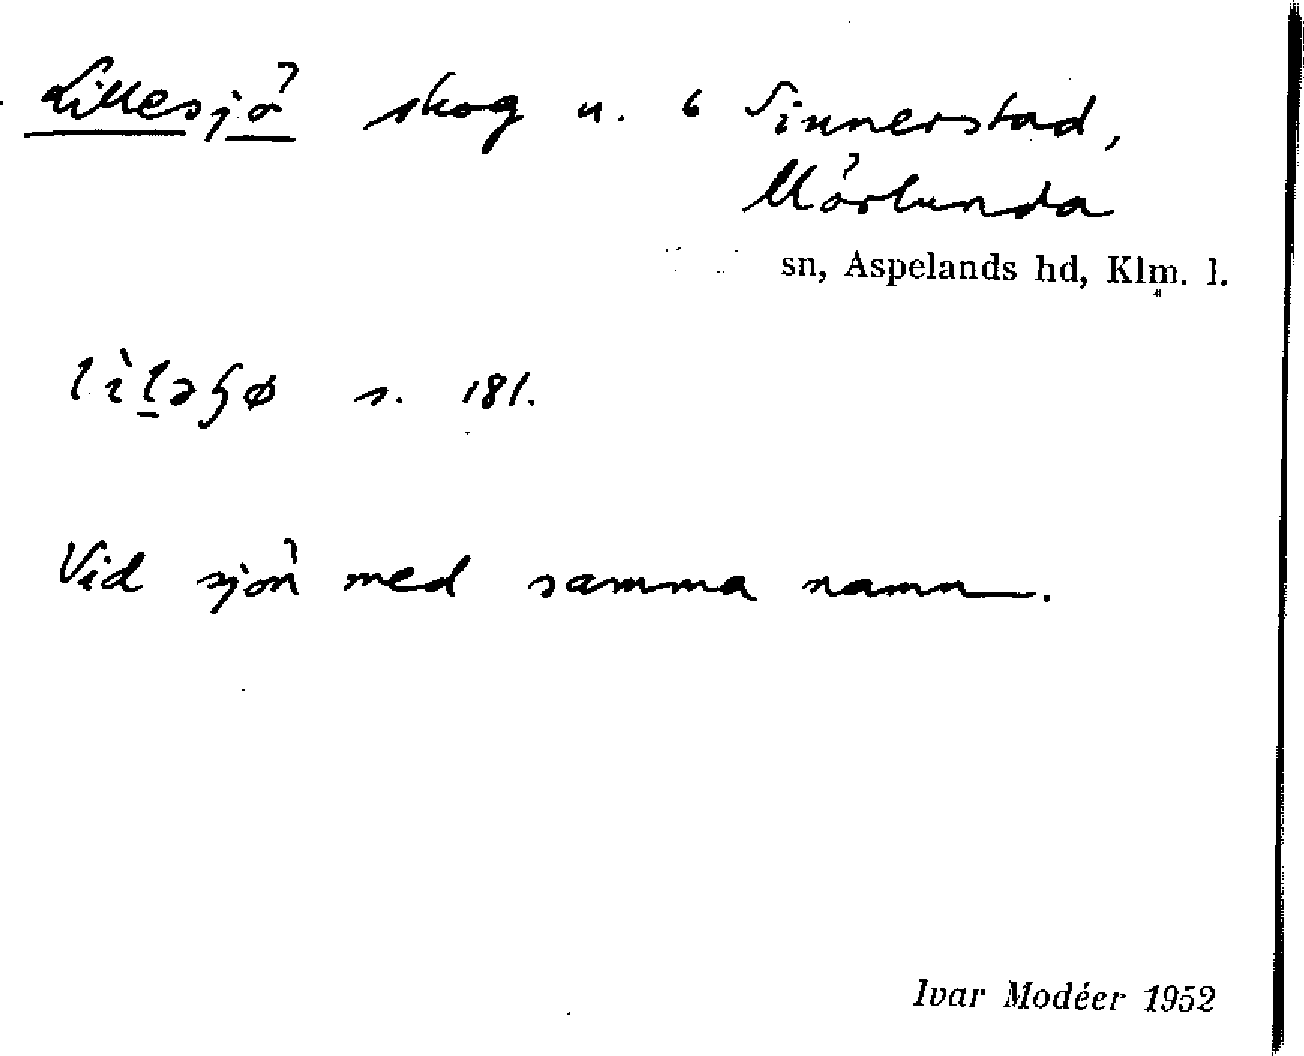 Lillesjö skog u. 6 Sinnerstad,
Mörlunda
sn, Aspelands hd, Klm. l.
lìlaɧø s. 181.
Vid sjön med samma namn.
Ivar Modéer 1952